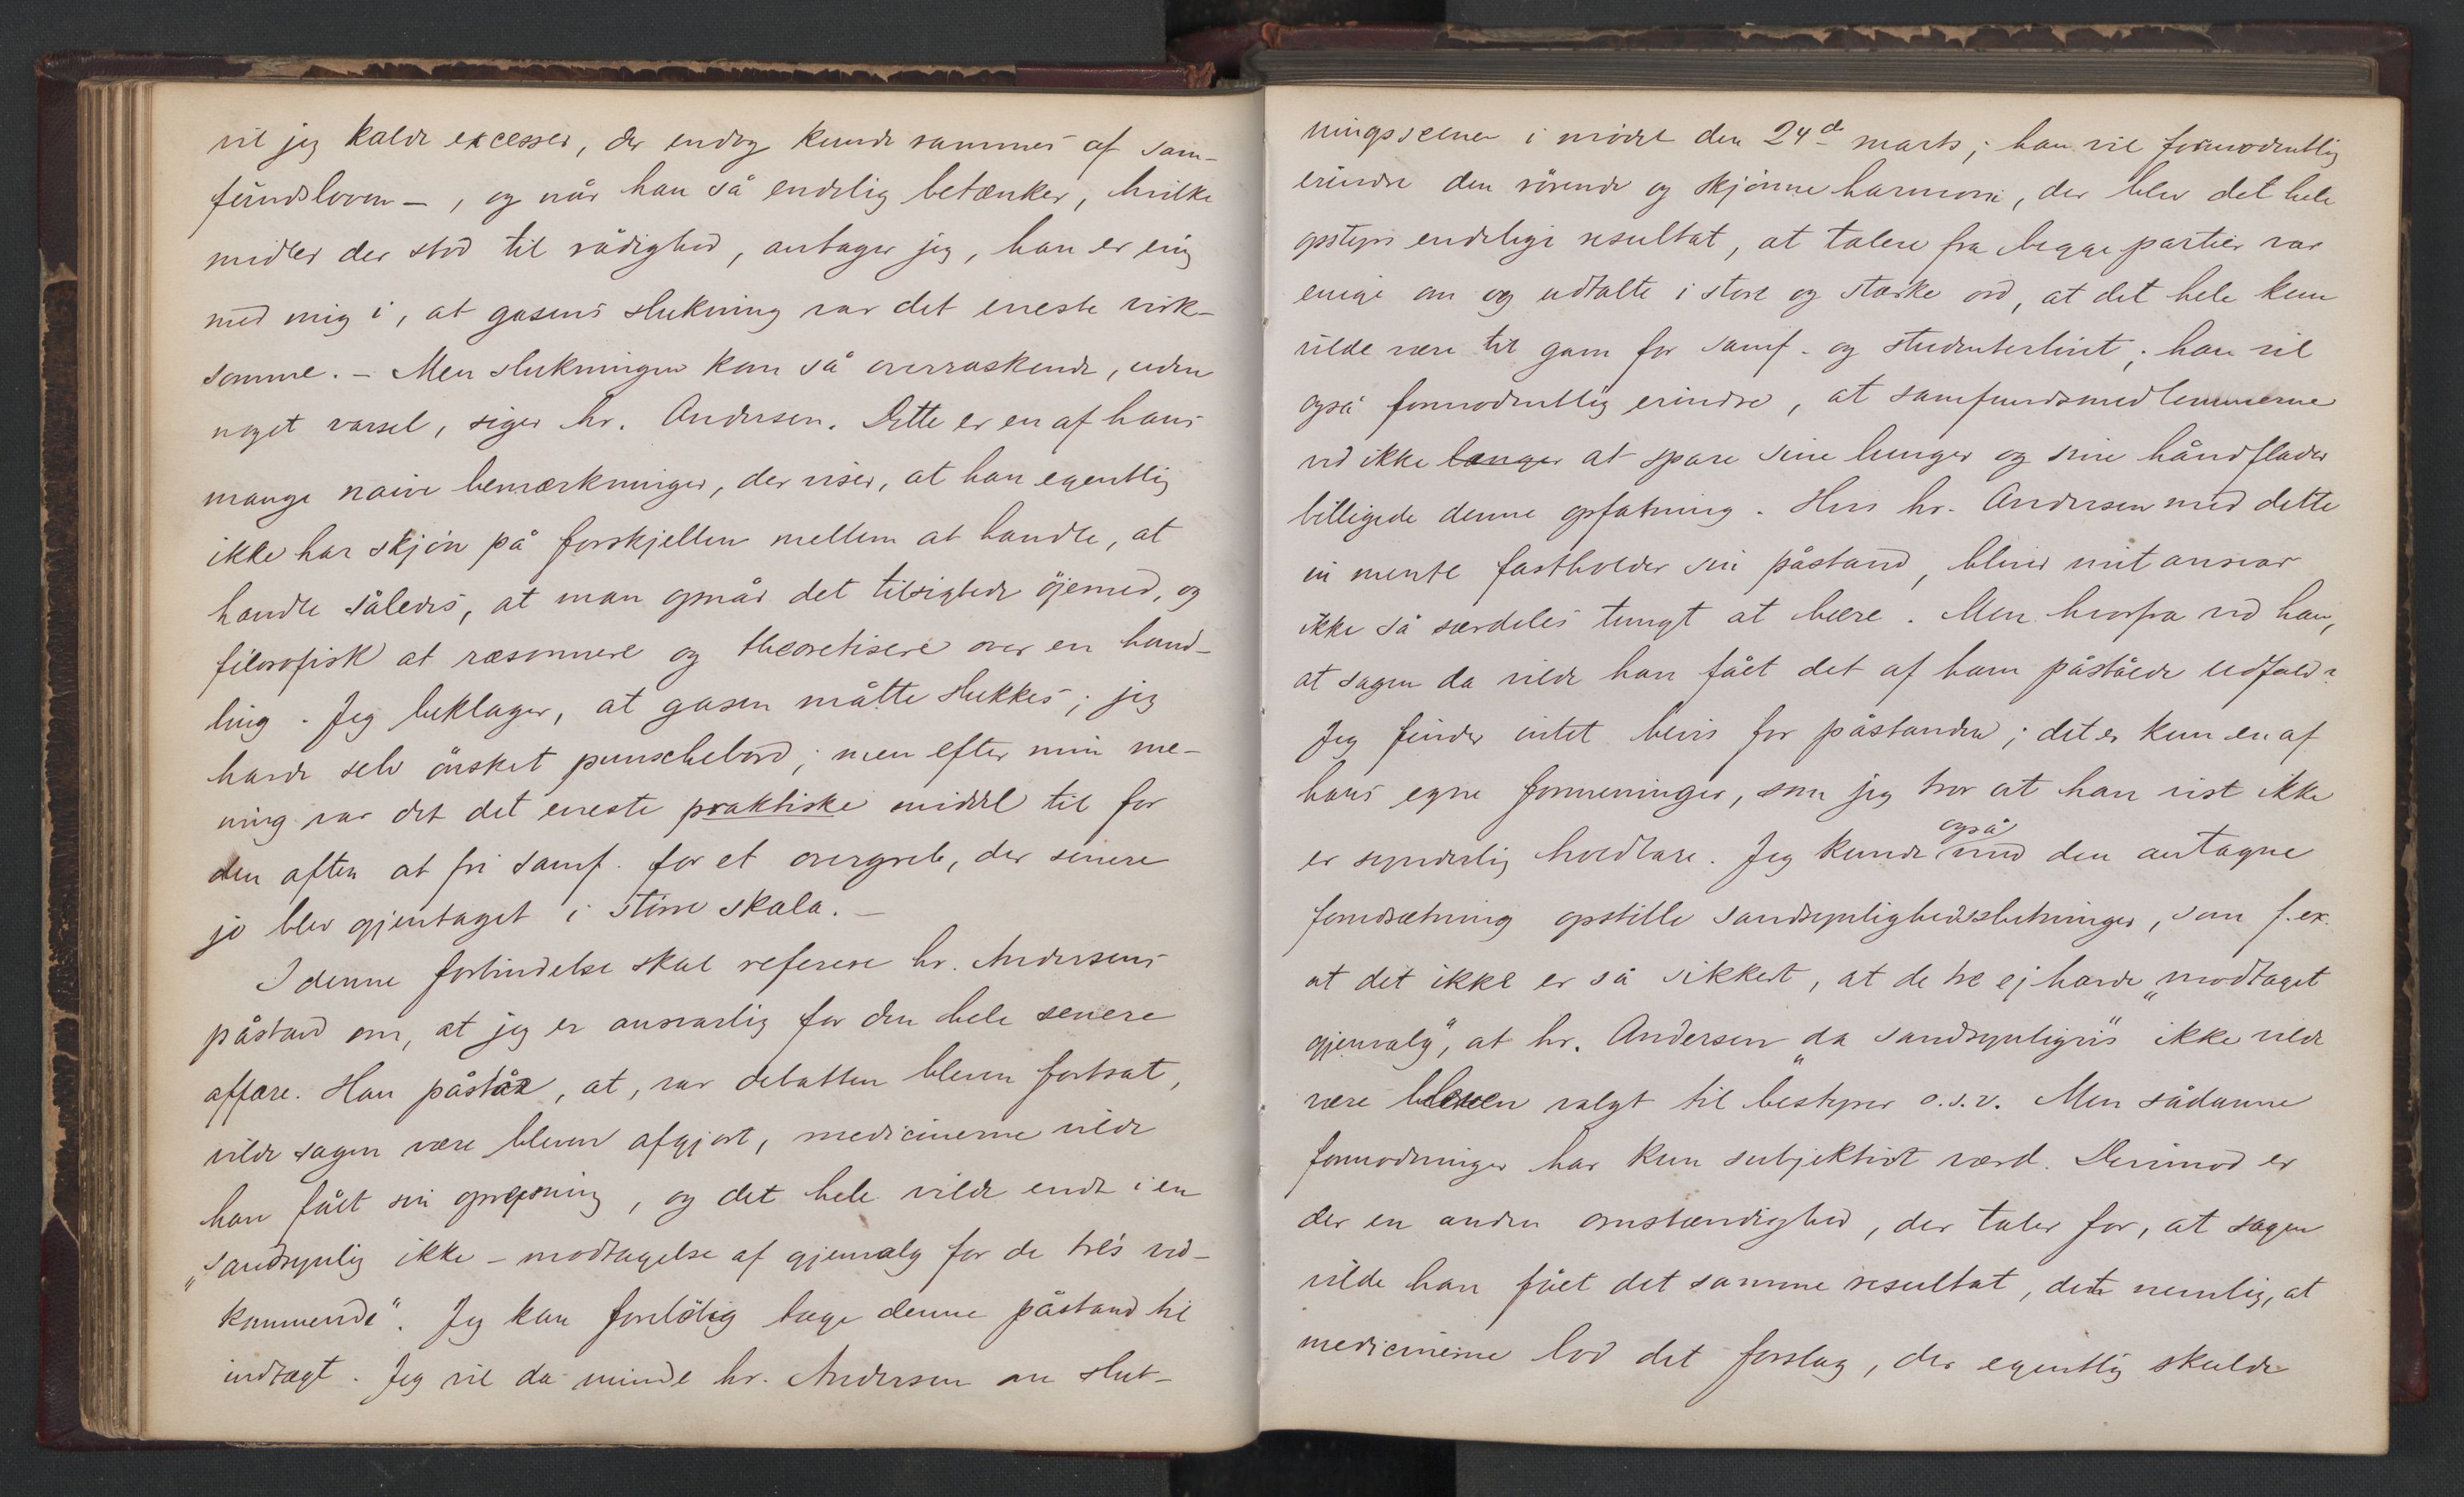 vil jeg kalde excesser, der endog kunde rammes af sam-
fundsloven –, og når han så endelig betænker, hvilke
midler der stod til rådighed, antager jeg, han er enig
med mig i, at gasens slukning var det eneste virk-
somme. – Men slukningen kom så overraskende, uden
noget varsel, siger hr. Andersen. Dette er en af hans
mange naive bemærkninger, der viser, at han egentlig
ikke har skjön på forskjellen mellem at handle, at
handle således, at man opnår det tilsigtede öjemed, og
filosofisk at ræsonnere og theoretisere over en hand-
ling. Jeg beklager, at gasen måtte slukkes; jeg
havde selv önsket punschebord; men efter min me-
ning var det det eneste praktiske middel til for
den aften at fri samf. for et overgreb, der senere
jo blev gjentaget i större skala. –
I denne forbindelse skal referere hr. Andersens
påstand om, at jeg er ansvarlig for den hele senere
affære. Han påstår, at, var debatten bleven fortsat,
vilde sagen være bleven afgjort, medicinerne vilde
han fået sin oprejsning, og det hele vilde endt i en
„sandsynlig ikke-modtagelse af gjenvalg for de tre's ved-
kommende“. Jeg kan forelöbig tage denne påstand til
indtægt. Jeg vil da minde hr. Andersen om slut-
ningsscenen i mödet den 24de marts; han vil formodentlig
erindre den rörende og skjönne harmoni, der blev det hele
opstyrs endelige resultat, at talere fra begge partier var
enige om og udtalte i store og stærke ord, at det hele kun
vilde være til gavn for samf. og studenterlivet; han vil
også formodentlig erindre, at samfundsmedlemmerne
ved ikke længer at spare sine lunger og sine håndflader
billigede denne opfatning. Hvis hr. Andersen med dette
in mente fastholder sin påstand, bliver mit ansvar
ikke så særdeles tungt at bære. Men hvorfra ved han,
at sagen da vilde han fået det af ham påståede udfald?
Jeg finder intet bevis for påstanden; det er kun en af
hans egne formeninger, som jeg tror at han vist ikke
er synderlig holdbare. Jeg kunde også med den antagne
forudsætning opstille sandsynlighedsslutninger, som f. ex.
at det ikke er så sikkert, at de tre ej havde „modtaget
gjenvalg“, at hr. Andersen „da sandsynligvis“ ikke vilde
være bleven valgt til bestyrer o.s.v. Men sådanne
formodninger har kun subjektivt værd. Derimod er
der en anden omstændighed, der taler for, at sagen
vilde han fået det samme resultat, dette nemlig, at
medicinerne lod det forslag, der egentlig skulde